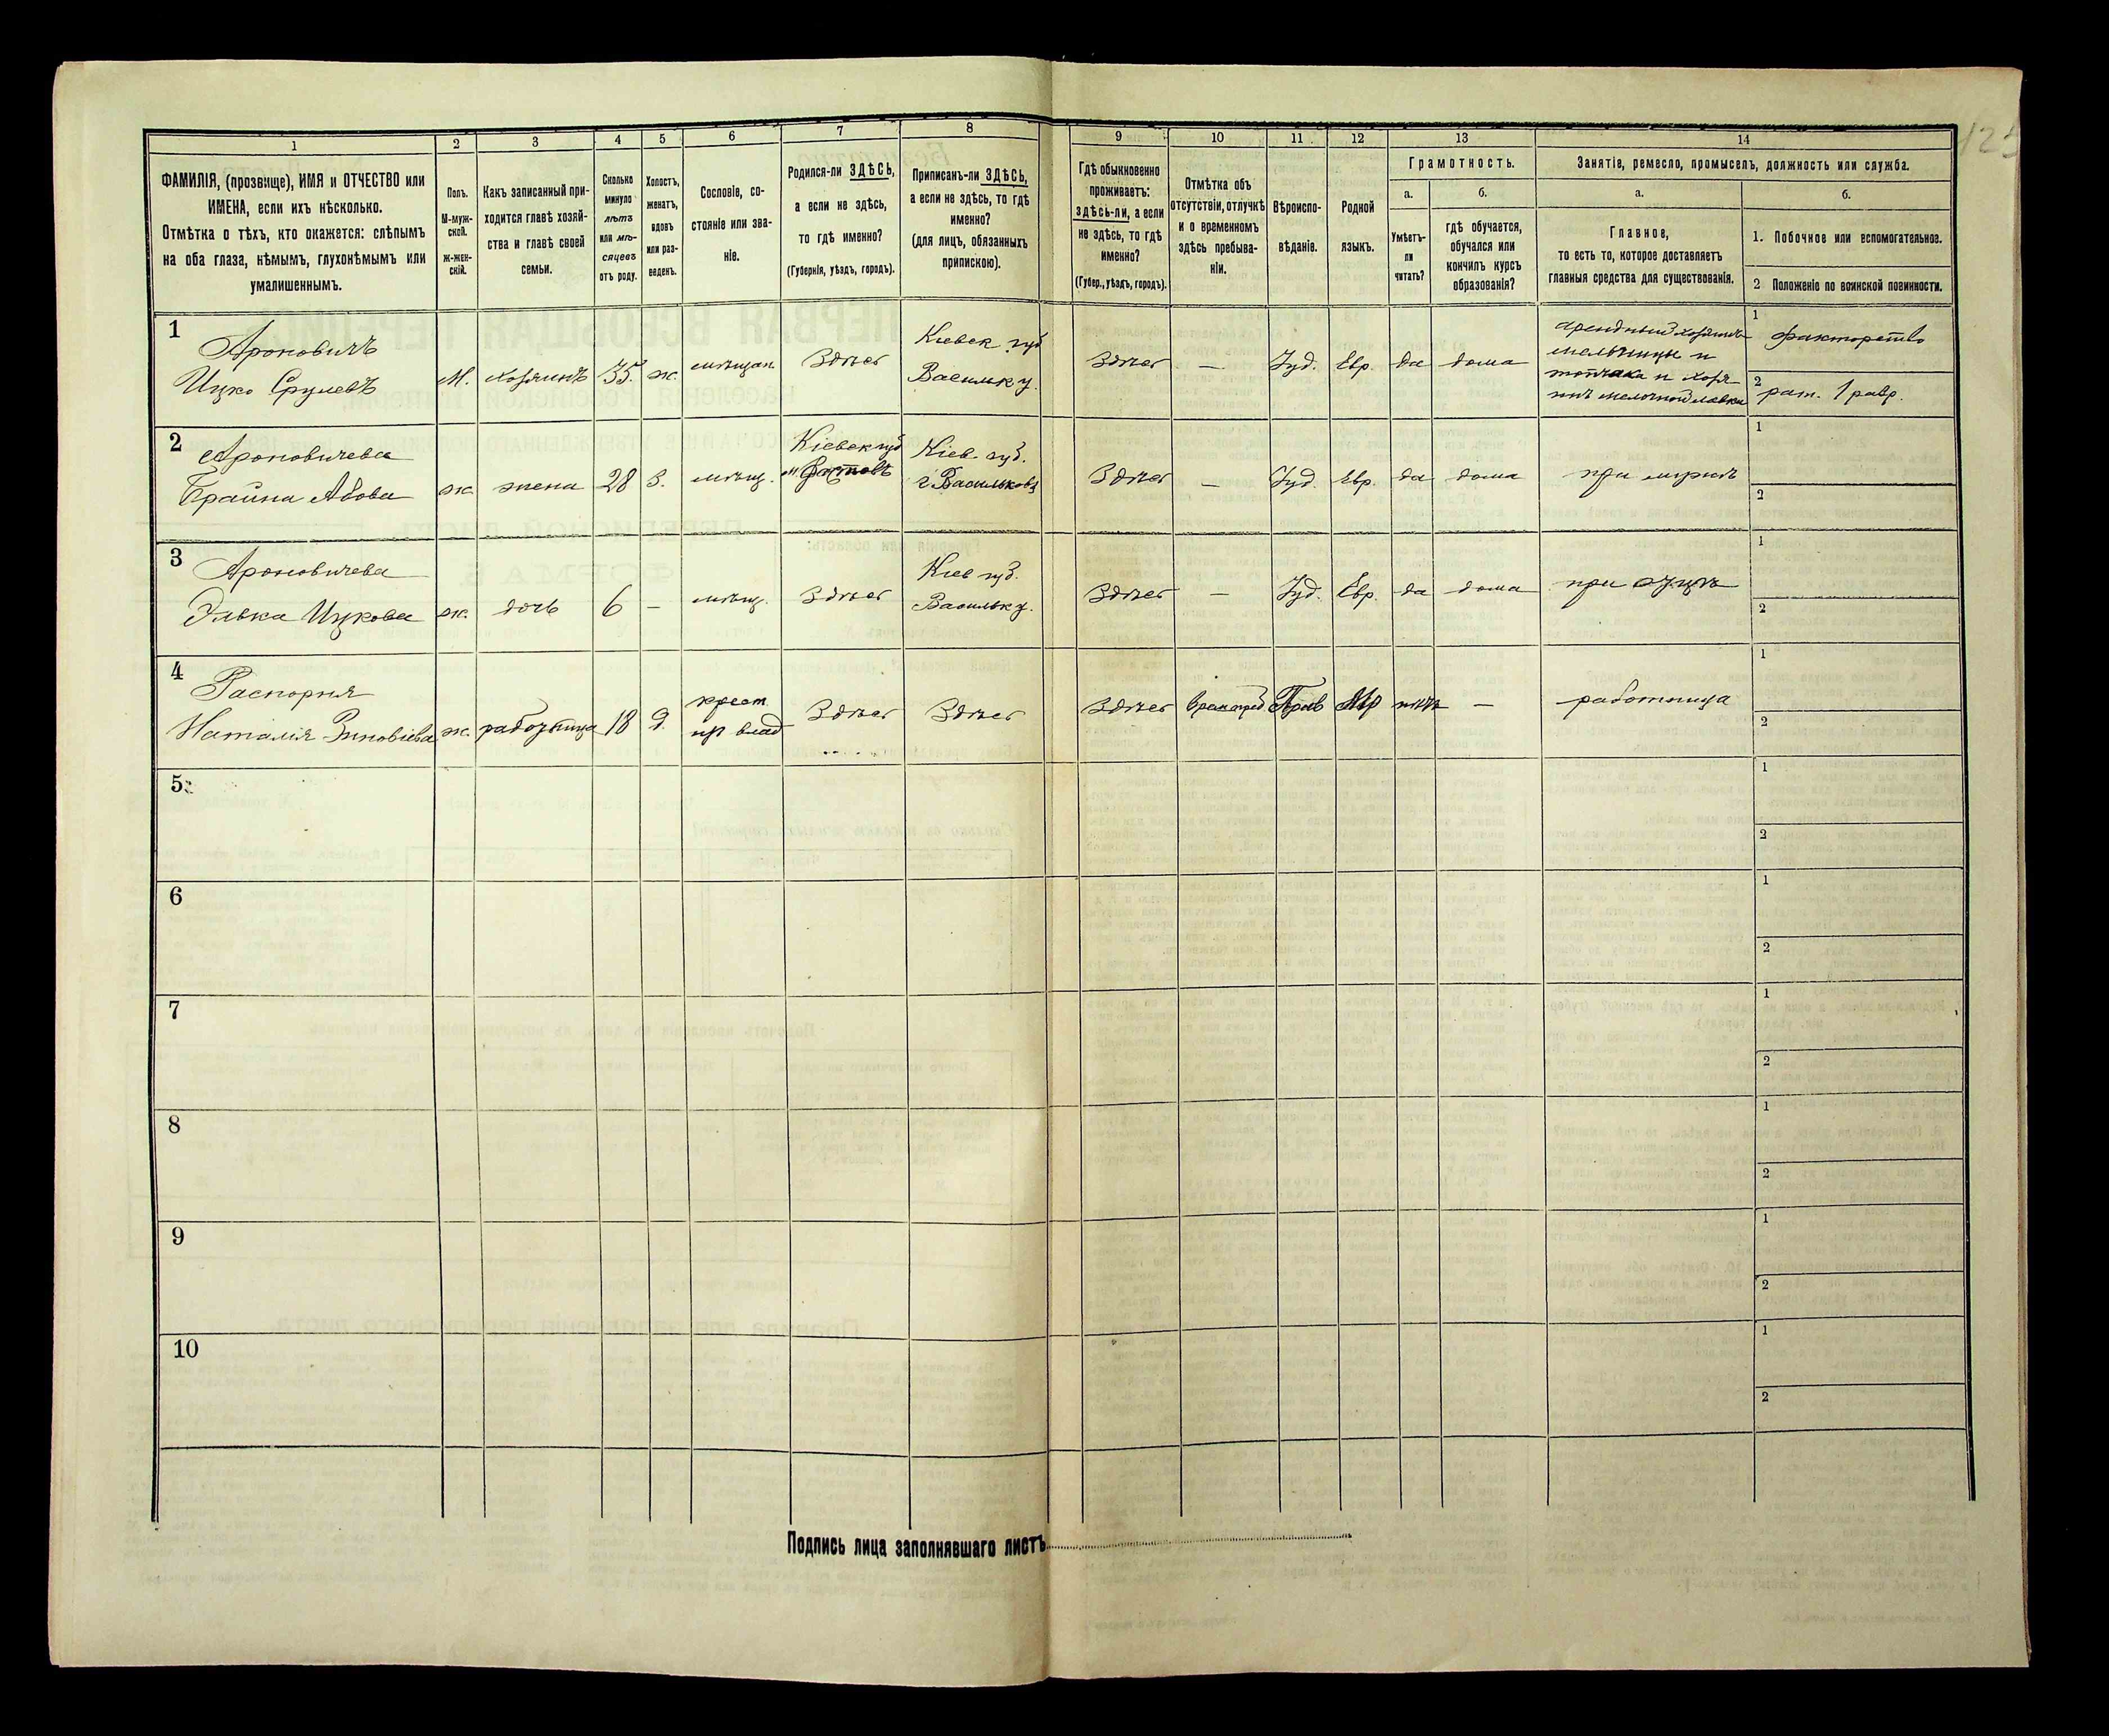 1 2 3 4 5 6 7 8 9 10 11 12 13 14
ФАМИЛІЯ, (прозвище), ИМЯ и ОТЧЕСТВО или
ИМЕНА, если ихъ нѣсколько.
Отмѣтка о тѣхъ, кто окажется: слѣпымъ
на оба глаза, нѣмымъ, глухонѣмымъ или
умалишеннымъ.
Полъ.
М-муж-
ской.
Ж-жен-
скій.
Какъ записанный при-
ходится главѣ хозяй-
ства и главѣ своей
семьи.
Сколько
минуло
лѣтъ
или мѣ-
сяцевъ
отъ роду.
Холостъ,
женатъ,
вдовъ
или раз-
веденъ.
Сословіе, со-
стояніе или зва-
ніе.
Родился-ли ЗДѢСЬ,
а если не здѣсь,
то гдѣ именно?
(Губернія, уѣздъ, городъ).
Приписанъ-ли ЗДѢСЬ,
а если не здѣсь, то гдѣ
именно?
(для лицъ, обязанныхъ
припискою).
Гдѣ обыкновенно
проживаетъ:
здѣсь-ли, а если
не здѣсь, то гдѣ
именно?
(Губер., уѣздъ, городъ).
Отмѣтка объ
отсутствіи, отлучкѣ
и о временномъ
здѣсь пребыва-
ніи.
Вѣроиспо-
вѣданіе.
Родной
языкъ.
Грамотность.
а.
Умѣетъ-
ли
читать?
б.
гдѣ обучается,
обучался или
кончилъ курсъ
образованія?
Занятіе, ремесло, промыселъ, должность или служба.
а.
Главное,
то есть то, которое доставляетъ
главныя средства для существованія.
б.
1. Побочное или вспомогательное.
2 Положеніе по воинской повинности.
1
Ароновичъ
Ицко Срулевъ
М.
хозяинъ
35
ж.
мѣщан.
Здѣсь
Кіевск губ
Васильк у.
Здѣсь
—
Іуд.
Евр.
да
дома
мельницы и
топчака и хозя-
инъ мелочной лавки
1 факторство
2 рат. 1 разр.
2
Ароновичева
Брайна Абова
ж.
жена
28
З.
мѣщ.
Кіевск губ
м Фастовъ
Кіев. губ.
г Васильковъ
Здѣсь
—
Іуд.
Евр.
да
дома
при мужѣ
1
2
3
Ароновичева
Элька Ицкова
ж.
дочь
6
—
мѣщ.
Здѣсь
Кіев губ.
Васильк у.
Здѣсь
—
Іуд.
Евр.
да
дома
при отцѣ
1
2
4
Наталія Зиновіева
ж.
работница
18
Д.
крест.
из влад
Здѣсь
Здѣсь
Здѣсь
Прав
Мр
нѣтъ
—
работница
1
2
5
1
2
6
1
2
7
1
2
8
1
2
9
1
2
10
1
2
Подпись лица заполнявшаго листъ